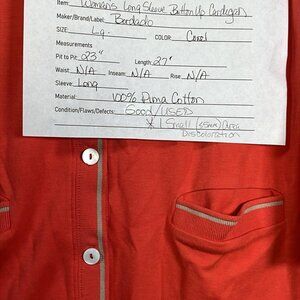 Item: Womens Long Sleeve Button Up Cardigan
Maker/Brand/Label: Bordado
SIZE: Lg. COLOR: Coral
Measurements
Pit to Pit: 23" Length: 27"
Waist: N/A Inseam: N/A Rise: N/A
Sleeve: Long
Material: 100% Pima Cotton
Condition/Flaws/Defects: Good/USED
X 1 Small
Discoloration